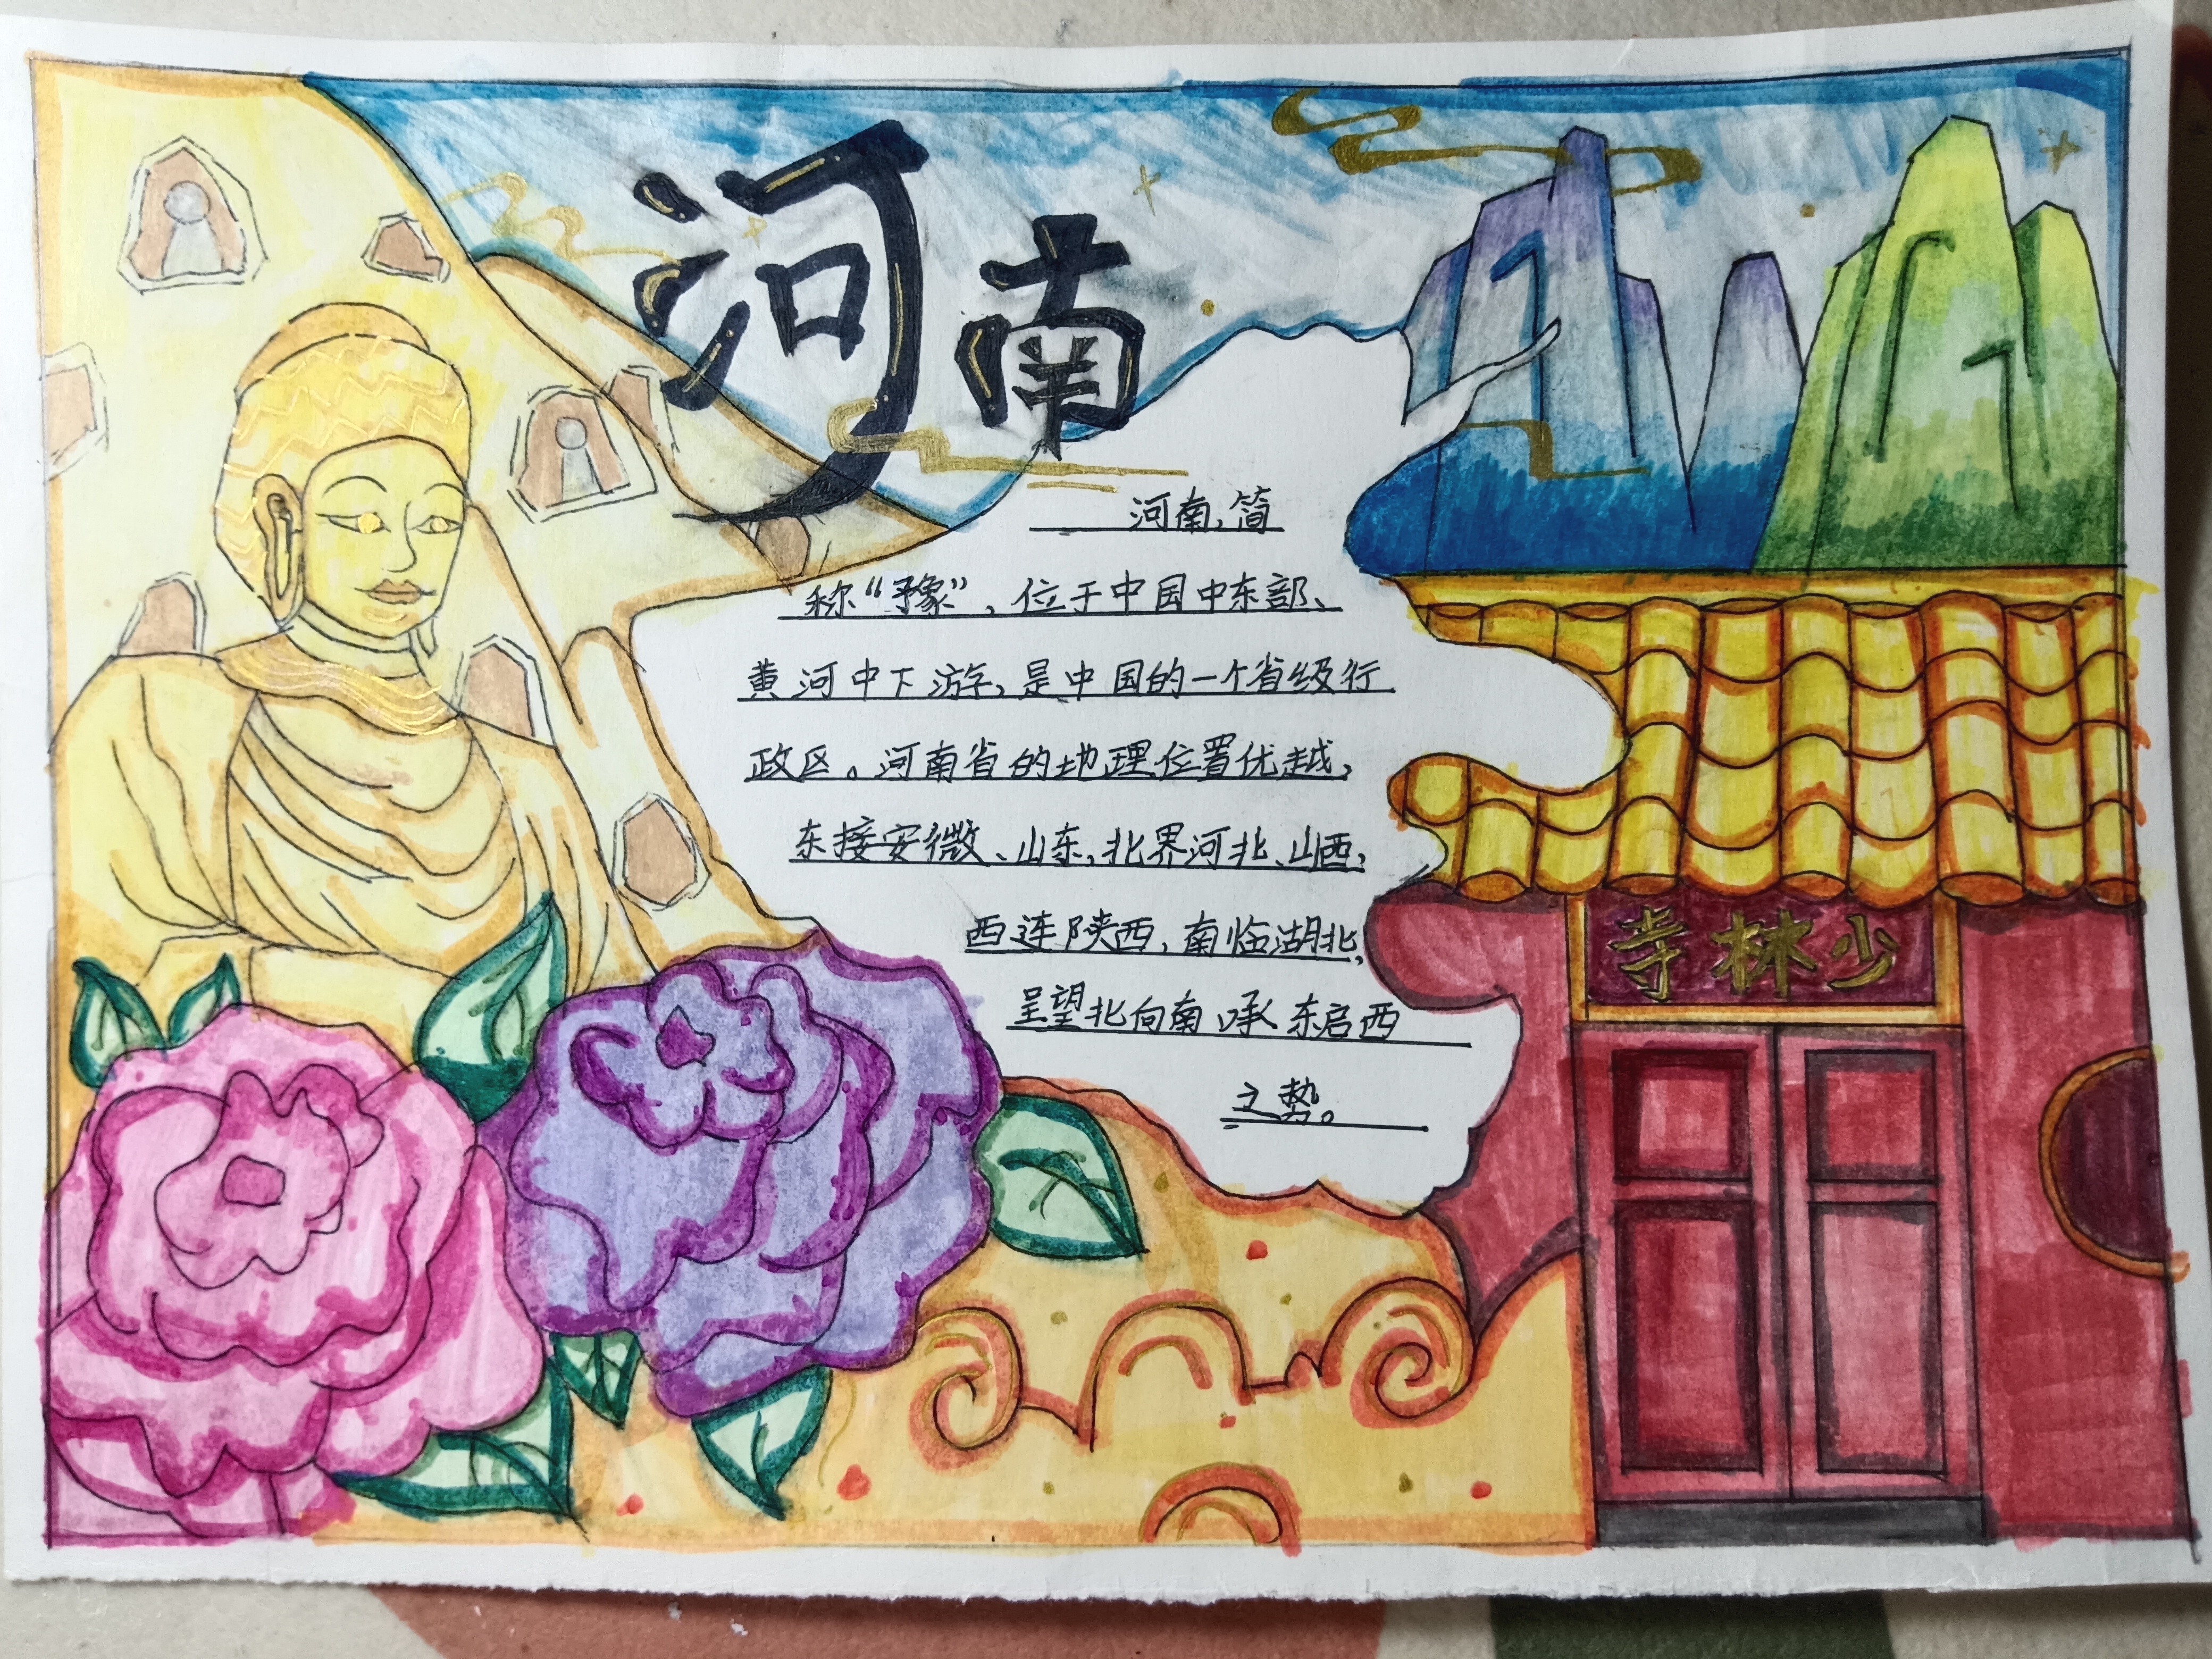 河南
河南，简
称“豫”，位于中国中东部、
黄河中下游，是中国的一个省级行
政区。河南省的地理位置优越，
东接安徽、山东，北界河北、山西，
西连陕西，南临湖北，
呈望北向南承东启西
之势。
少林寺